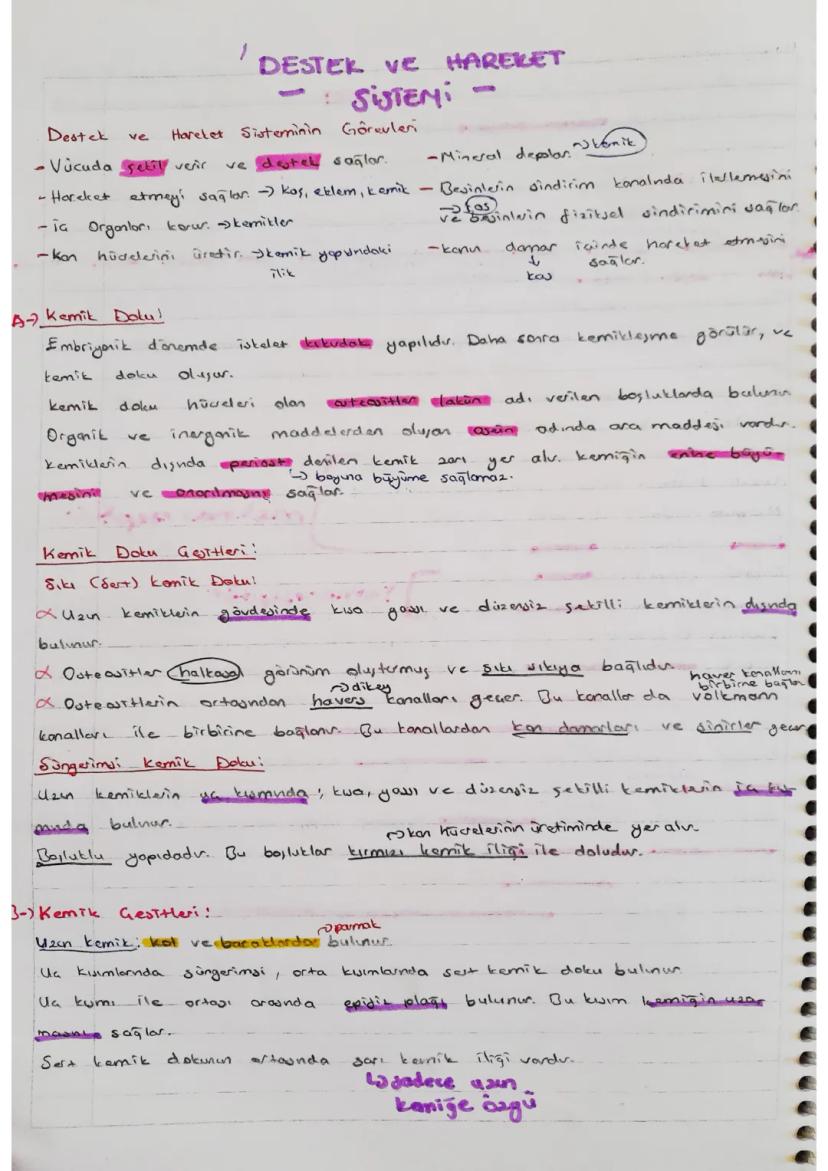 DESTEK VE HAREKET
- SİSTEMİ -
Destek ve Hareket Sisteminin Görevleri
- Vücuda şekil verir ve destek sağlar.
- Hareket etmeyi sağlar. → kas, eklem, kemik
- iç Organları korur. → kemikler
- Kan hücrelerini üretir. → kemik yapısındaki
ilik
- Mineral depolar. → kemik
- Besinlerin sindirim kanalında ilerlemesini
→ kas
ve besinlerin fiziksel sindirimini sağlar.
- kanın damar içinde hareket etmesini
↓ sağlar.
kas
A-) Kemik Doku!
Embriyonik dönemde iskelet kıkırdak yapılıdır. Daha sonra kemikleşme görülür, ve
kemik doku oluşur.
kemik doku hücreleri olan osteositler lakün adı verilen boşluklarda bulunur.
Organik ve inorganik maddelerden oluşan osein adında ara maddesi vardır.
kemiklerin dışında periost denilen kemik zarı yer alır. kemiğin enine büyü-
↳ boyuna büyüme sağlamaz.
mesini ve onarılmasını sağlar.
Kemik Doku Çeşitleri:
Sıkı (Sert) Kemik Doku:
α Uzun kemiklerin gövdesinde kısa yassı ve düzensiz şekilli kemiklerin dışında
bulunur.
α Osteositler halkasal görünüm oluşturmuş ve sıkı sıkıya bağlıdır.
→ dikey
havers kanallarını
birbirine bağlar
α Osteositlerin ortasından havers kanalları geçer. Bu kanallar da volkmann
kanalları ile birbirine bağlanır. Bu kanallardan kan damarları ve sinirler geçer
Süngerimsi Kemik Doku:
Uzun kemiklerin uç kısmında; kısa, yassı ve düzensiz şekilli kemiklerin iç kıs-
mında bulunur.
→ kan hücrelerinin üretiminde yer alır.
Boşluklu yapıdadır. Bu boşluklar kırmızı kemik iliği ile doludur.
B-) Kemik Çeşitleri:
→ parmak
Uzun kemik: kol ve bacaklarda bulunur.
Uç kısımlarında süngerimsi, orta kısımlarında sert kemik doku bulunur.
Uç kısmı ile ortası arasında epifiz plağı bulunur. Bu kısım kemiğin uza-
masını sağlar.
Sert kemik dokunun ortasında sarı kemik iliği vardır.
↳ sadece uzun
kemiğe özgü